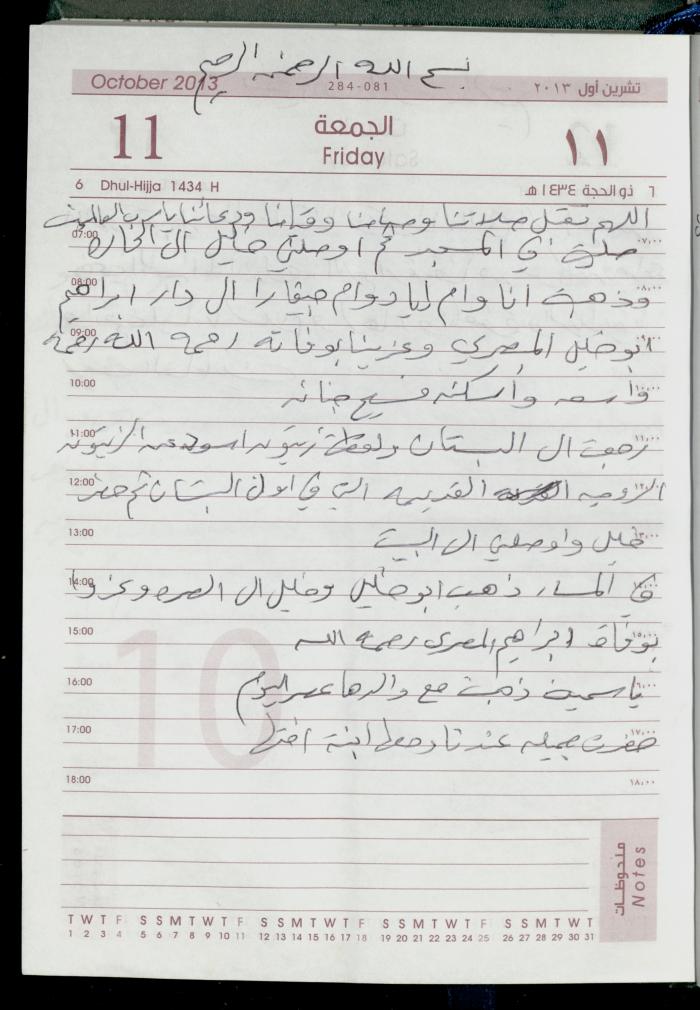 بسم الله الرحمن الرحيم
October 2013 284-081 تشرين أول ٢٠١٣
11 الجمعة ١١
Friday
6 Dhul-Hijja 1434 H ٦ ذو الحجة ١٤٣٤ هـ
اللهم تقبل صلاتنا وصيامنا وقيامنا ودعائنا يا رب العالمين
07:00 صليت في المسجد ثم اوصلني خليل الى الحارة ٠٧,٠٠
08:00 وذهبت انا وام اياد وام جيفارا ال دار ابراهيم ٠٨,٠٠
09:00 ابو خليل المصري وعزينا بوفاته رحمه الله رحمة ٠٩,٠٠
10:00 واسعه واسكنه فسيح جنانه ١٠,٠٠
11:00 رجعت ال البستان ولقطة زيتونه اسوده عن الزيتونه ١١,٠٠
12:00 الروميه القديمه التي في اول البستان ثم حضر ١٢,٠٠
13:00 خليل واوصلني ال البيت ١٣,٠٠
14:00 في المساء ذهب ابو خليل وخليل ال وعزوا ١٤,٠٠
15:00 بوفاة ابراهيم المصري رحمه الله ١٥,٠٠
16:00 ياسمين ذهبت مع والدها عصر اليوم ١٦,٠٠
17:00 حضرت جميله عندنا ومعها ابنة اختها ١٧,٠٠
18:00 ١٨,٠٠
10
ملحوظات
Notes
T W T F S S M T W T F S S M T W T F S S M T W T F S S M T W T
1 2 3 4 5 6 7 8 9 10 11 12 13 14 15 16 17 18 19 20 21 22 23 24 25 26 27 28 29 30 31